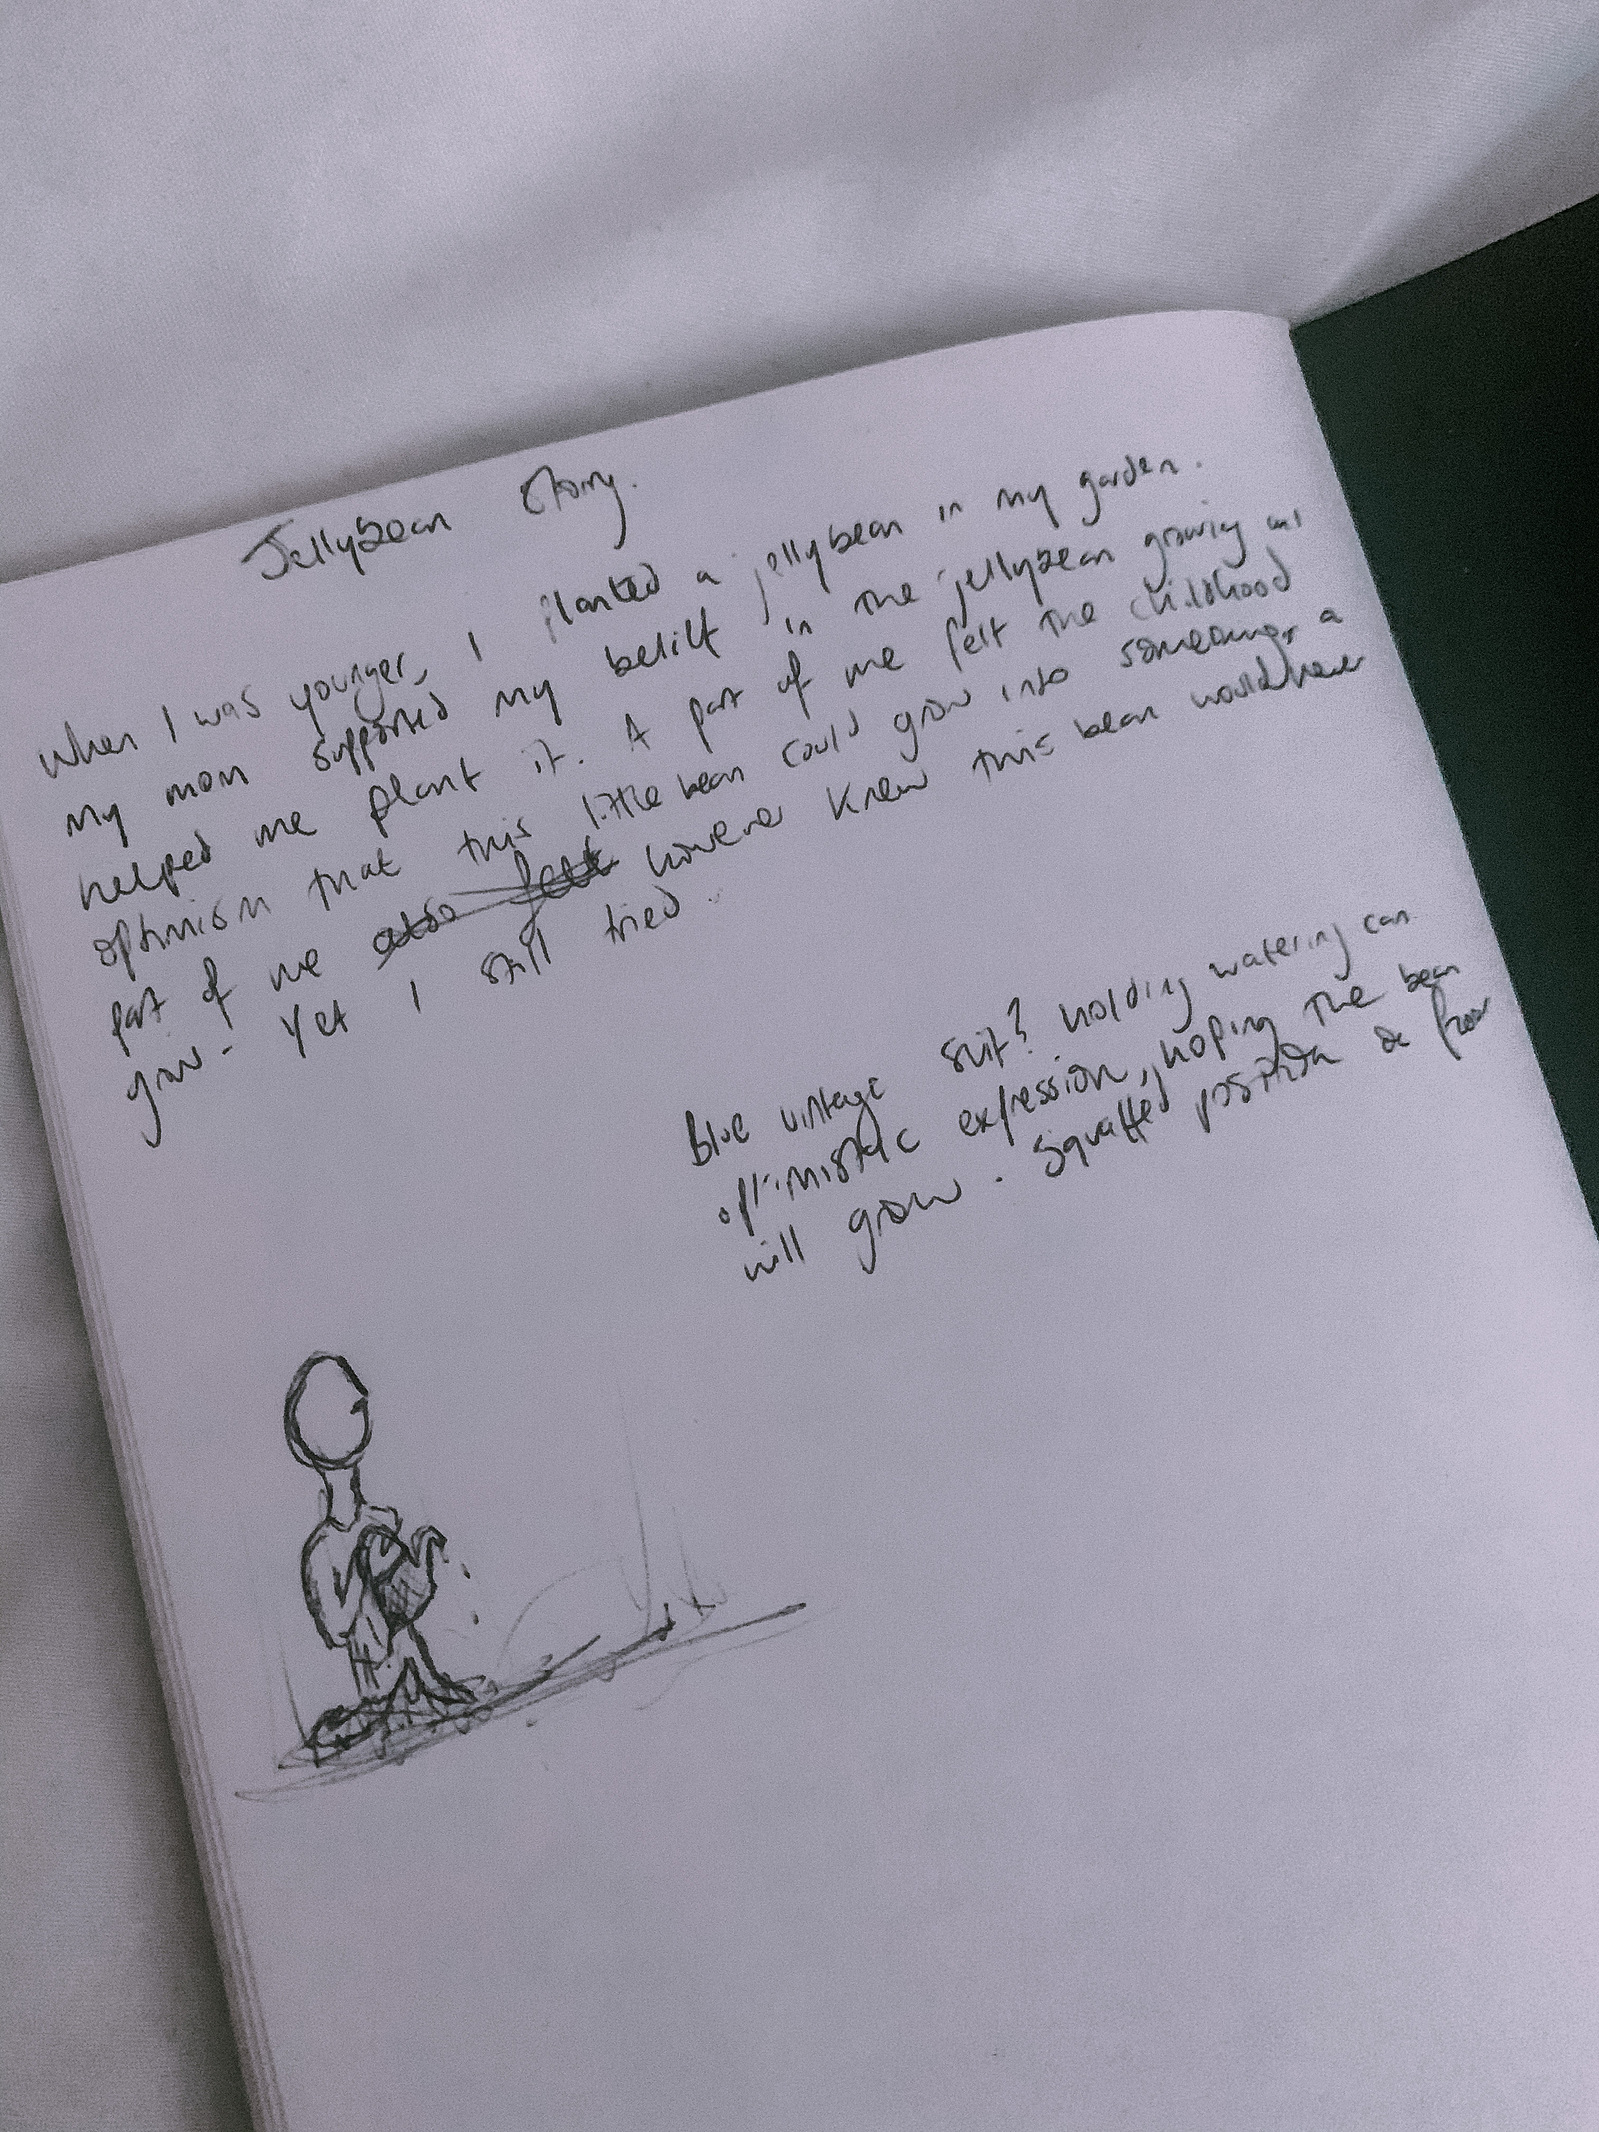 Jellybean Story.
When I was younger, I planted a jellybean in my garden.
My mom supported my belief in the jellybean growing and
helped me plant it. A part of me felt the childhood
optimism that this little bean could grow into something, a
part of me also felt however knew this bean would never
grow. Yet I still tried.
Blue vintage suit? Holding watering can
optimistic expression, hoping the bean
will grow. Squatted position